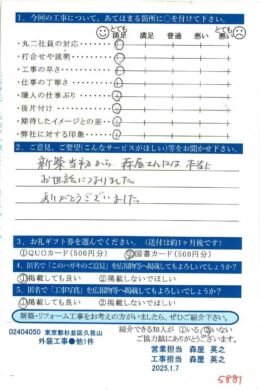 1．今回の工事について、あてはまる箇所に○を付けて下さい。
とても満足 満足 普通 悪い とても悪い
・丸二社員の対応‥‥
・打合せや説明‥‥‥
・工事の早さ‥‥‥‥
・仕事の丁寧さ‥‥‥
・職人の仕事ぶり‥‥
・後片付け‥‥‥‥‥
・期待したイメージとの差‥
・弊社に対する印象‥‥
2．ご意見、ご要望（こんなサービスがほしい）等をお聞かせ下さい。
新築当初から 森屋さんには 本当に
お世話になりました。
ありがとうございました。
3．お礼ギフト券を選んでください。（送付は約1ヶ月後です）
①QUOカード（500円分） ②図書カード（500円分）
4．匿名で「このハガキのご意見」を広報物等へ掲載してもよろしいでしょうか？
①掲載してよい ②掲載しないでほしい
5．匿名で「工事写真」を広報物等へ掲載してもよろしいでしょうか？
①掲載してよい ②掲載しないでほしい
新築・リフォーム工事をお考えの方がいましたら、ぜひご紹介下さい。
02404050 東京都杉並区久我山
外装工事●他1件
紹介できる知人が ①いる ②いない
ご協力誠にありがとうございます。
営業担当 森屋 英之
工事担当 森屋 英之
2025.1.7
5881